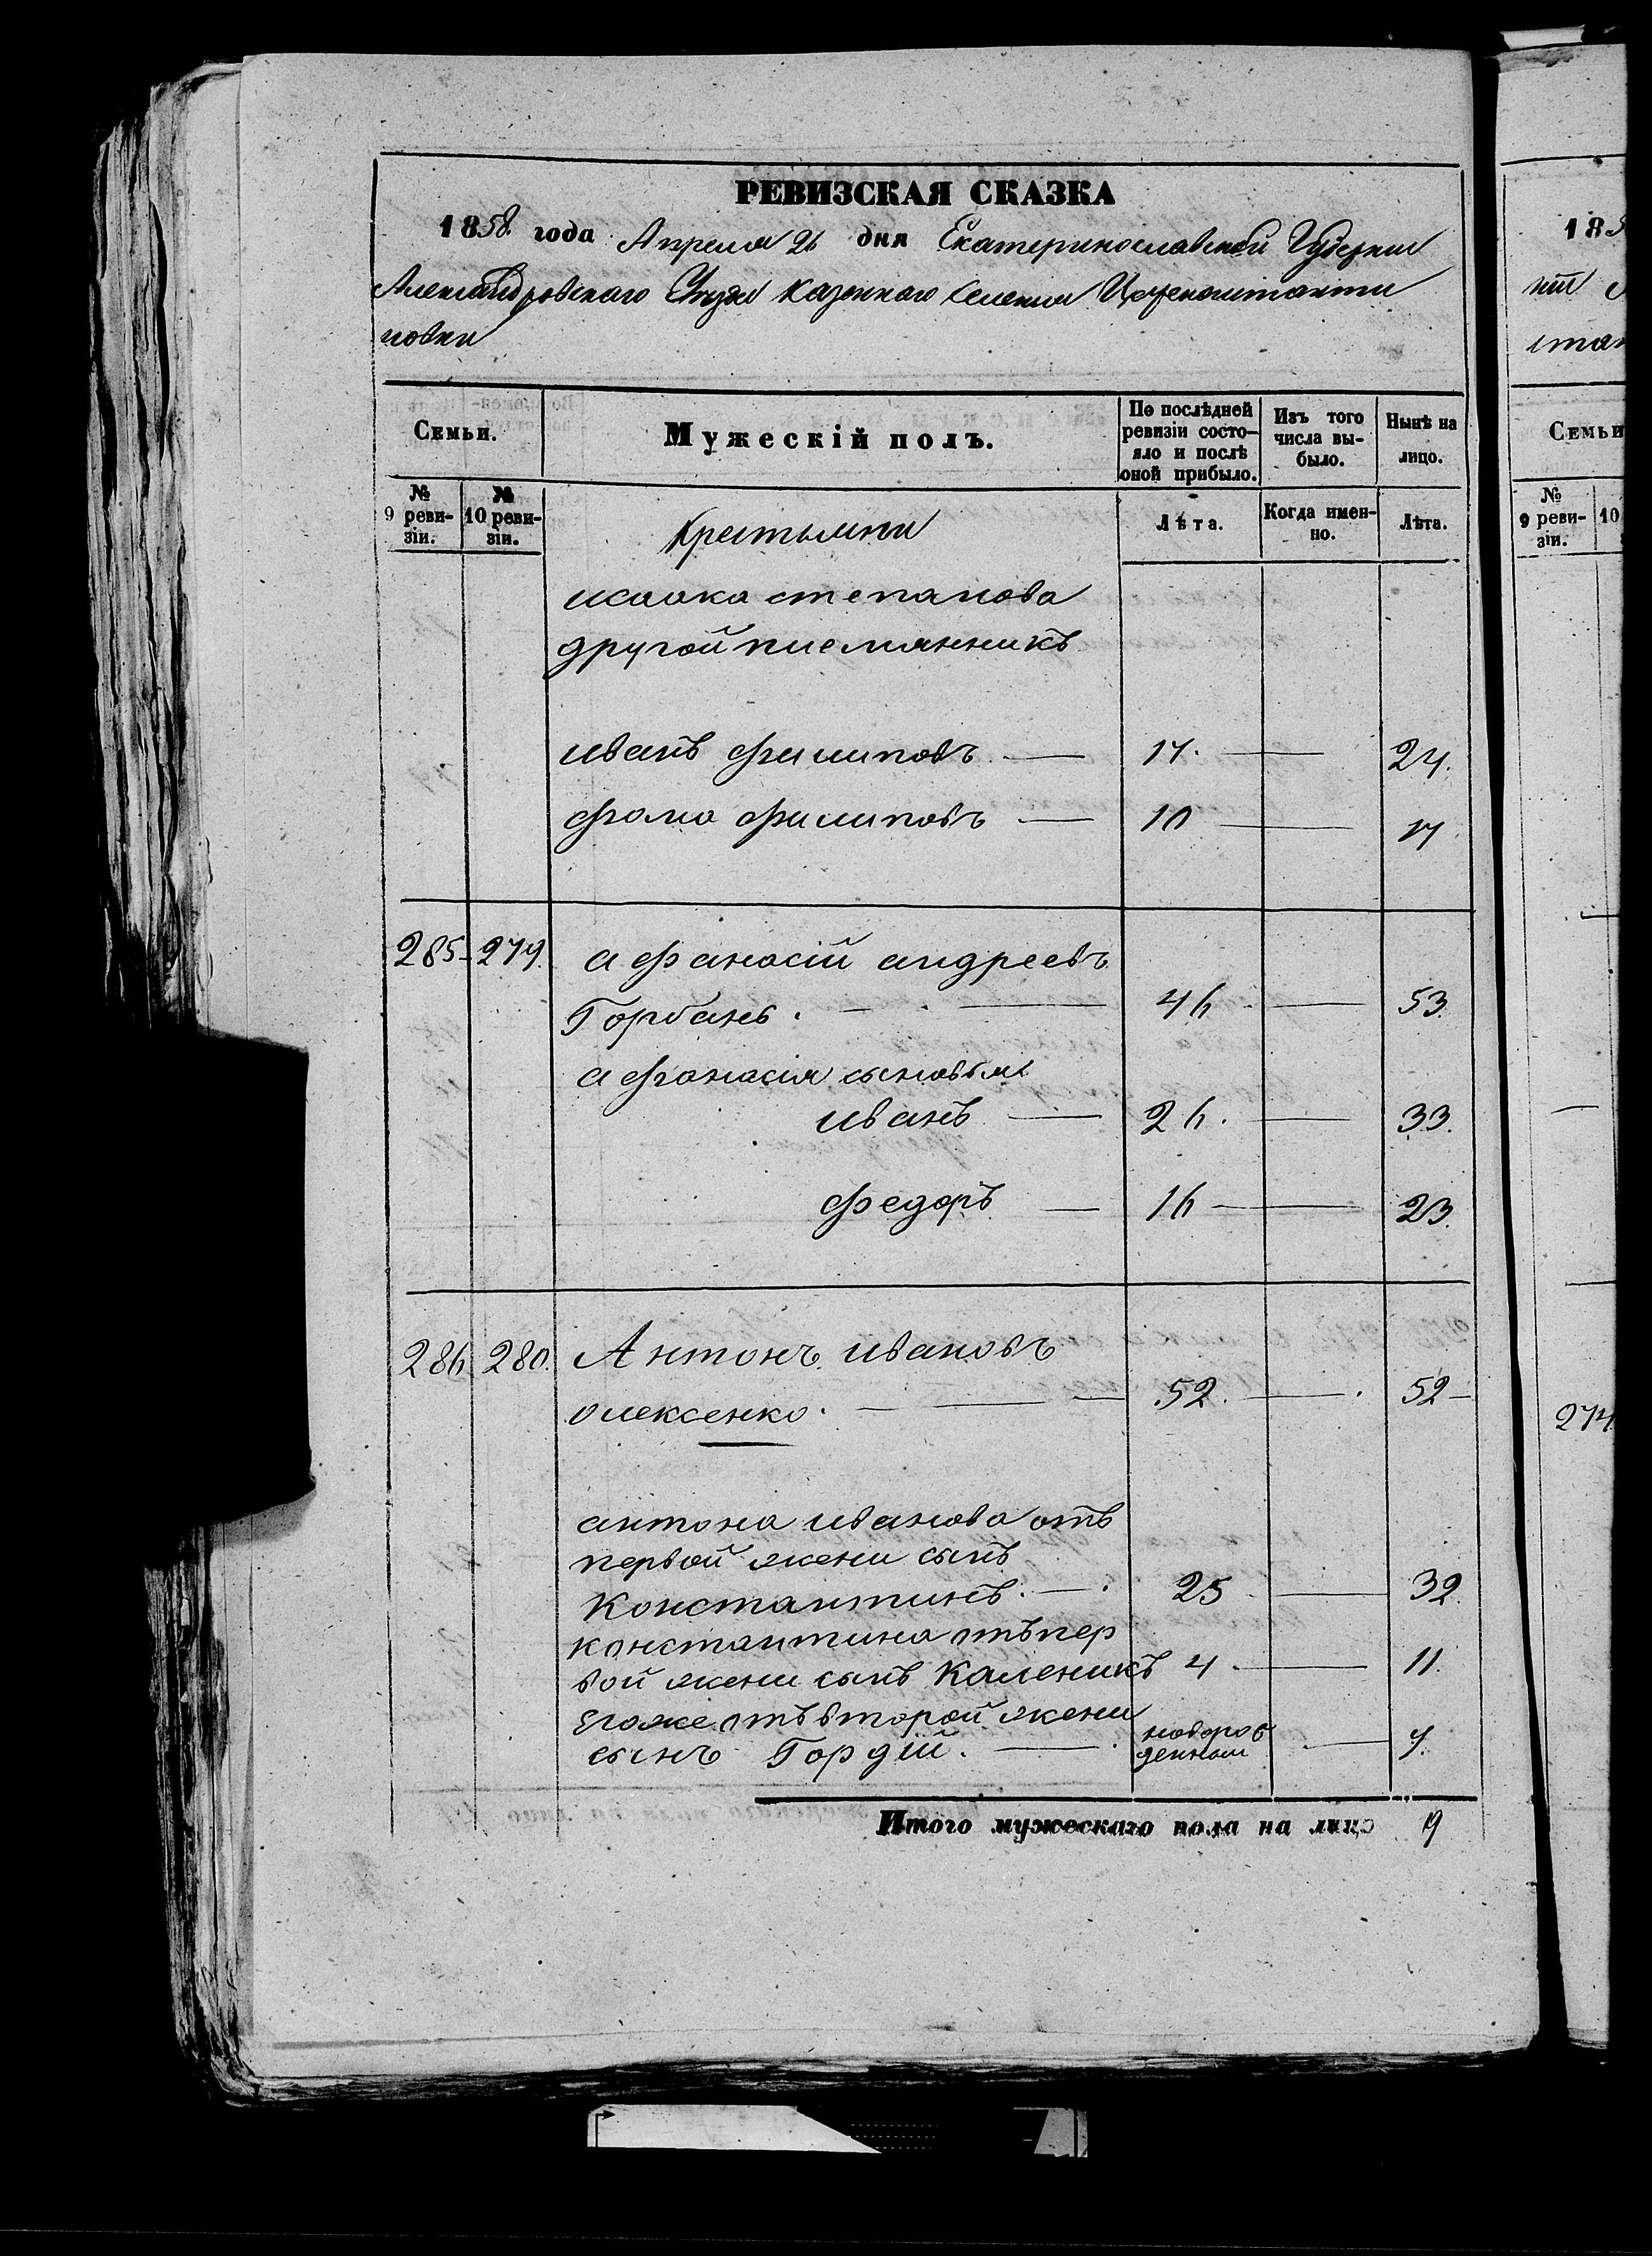 РЕВИЗСКАЯ СКАЗКА
1858 года Апреля 26 дня Екатеринославской Губернии
Александровского Уезда Казенного Селения Цареконстанти
новки
Семьи.
Мужескій полъ.
По послѣдней
ревизіи состо-
яло и послѣ
оной прибыло.
Изъ того
числа вы-
было.
Нынѣ на
лицо.
№
9 реви-
зіи.
№
10 реви-
зіи.
Крестьяни
Лѣта.
Когда имен-
но.
Лѣта.
исаака степанова
другой племянникъ
иванъ филиповъ — 17. — 24.
фома филиповъ — 10 — 17
285 279. афанасій андреевъ
Горбань. — 46 — 53.
афанасія сыновья
иванъ — 26. — 33.
федоръ — 16 — 23.
286 280. Антонъ ивановъ
олексенко. — 52. — 52
антона иванова отъ
первой жени сынъ
Константинъ. — 25 — 32.
константина отъ пер
вой жени сынъ Каленикъ 4 — 11.
Егоже отъ второй жени
сынъ Гордій. — новорож
денный — 7.
Итого мужескаго пола на лицо 9
185
Семьи
№
9 реви-
зіи.
10
274